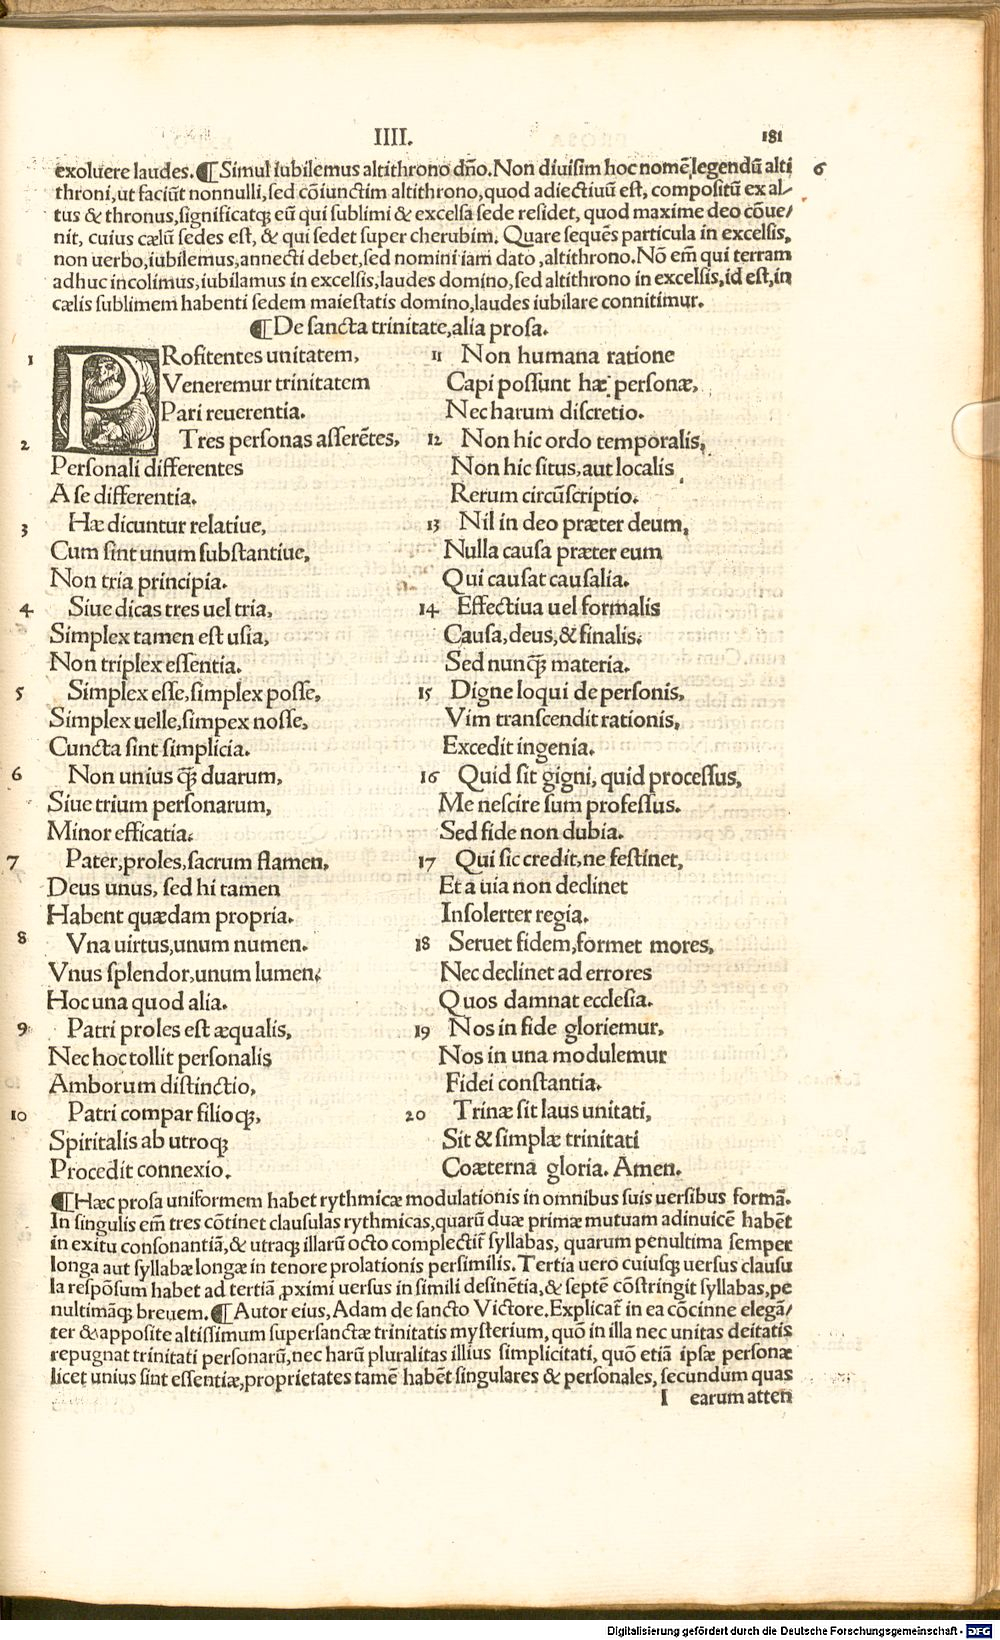 IIII. 181
exoluere laudes. ¶ Simul iubilemus altithrono dño. Non diuisim hoc nomē legendū alti 6
throni, ut faciūt nonnulli, sed cōiunctim altithrono, quod adiectiuū est, compositū ex al-
tus & thronus, significatq; eū qui sublimi & excelsa sede residet, quod maxime deo cōue/
nit, cuius cælū sedes est, & qui sedet super cherubim. Quare sequēs particula in excelsis,
non uerbo, iubilemus, annecti debet, sed nomini iam dato, altithrono. Nō em̄ qui terram
adhuc incolimus, iubilamus in excelsis, laudes domino, sed altithrono in excelsis, id est, in
cælis sublimem habenti sedem maiestatis domino, laudes iubilare connitimur.
¶ De sancta trinitate, alia prosa.
1 PRofitentes unitatem,
Veneremur trinitatem
Pari reuerentia.
2 Tres personas asserētes,
Personali differentes
A se differentia.
3 Hæ dicuntur relatiue,
Cum sint unum substantiue,
Non tria principia.
4 Siue dicas tres uel tria,
Simplex tamen est usia,
Non triplex essentia.
5 Simplex esse, simplex posse,
Simplex uelle, simpex nosse,
Cuncta sint simplicia.
6 Non unius q̄; duarum,
Siue trium personarum,
Minor efficatia.
7 Pater, proles, sacrum flamen,
Deus unus, sed hi tamen
Habent quædam propria.
8 Vna uirtus, unum numen.
Vnus splendor, unum lumen,
Hoc una quod alia.
9 Patri proles est æqualis,
Nec hoc tollit personalis
Amborum distinctio,
10 Patri compar filioq;,
Spiritalis ab utroq;
Procedit connexio.
11 Non humana ratione
Capi possunt hæ personæ,
Nec harum discretio.
12 Non hic ordo temporalis,
Non hic situs, aut localis
Rerum circūscriptio.
13 Nil in deo præter deum,
Nulla causa præter eum
Qui causat causalia.
14 Effectiua uel formalis
Causa, deus, & finalis.
Sed nunq̄; materia.
15 Digne loqui de personis,
Vim transcendit rationis,
Excedit ingenia.
16 Quid sit gigni, quid processus,
Me nescire sum professus.
Sed fide non dubia.
17 Qui sic credit, ne festinet,
Et a uia non declinet
Insolerter regia.
18 Seruet fidem, formet mores,
Nec declinet ad errores
Quos damnat ecclesia.
19 Nos in fide gloriemur,
Nos in una modulemur
Fidei constantia.
20 Trinæ sit laus unitati,
Sit & simplæ trinitati
Coæterna gloria. Amen.
¶ Hæc prosa uniformem habet rythmicæ modulationis in omnibus suis uersibus formā.
In singulis em̄ tres cōtinet clausulas rythmicas, quarū duæ primæ mutuam adinuicē habēt
in exitu consonantiā, & utraq; illarū octo complectit̄ syllabas, quarum penultima semper
longa aut syllabæ longæ in tenore prolationis persimilis. Tertia uero cuiusq; uersus clausu
la respōsum habet ad tertiā ꝓximi uersus in simili desinētia, & septē cōstringit syllabas, pe
nultimāq; breuem. ¶ Autor eius, Adam de sancto Victore. Explicat̄ in ea cōcinne elegā/
ter & apposite altissimum supersanctæ trinitatis mysterium, quō in illa nec unitas deitatis
repugnat trinitati personarū, nec harū pluralitas illius simplicitati, quō etiā ipsæ personæ
licet unius sint essentiæ, proprietates tamē habēt singulares & personales, secundum quas
I earum atten
Digitalisierung gefördert durch die Deutsche Forschungsgemeinschaft - DFG